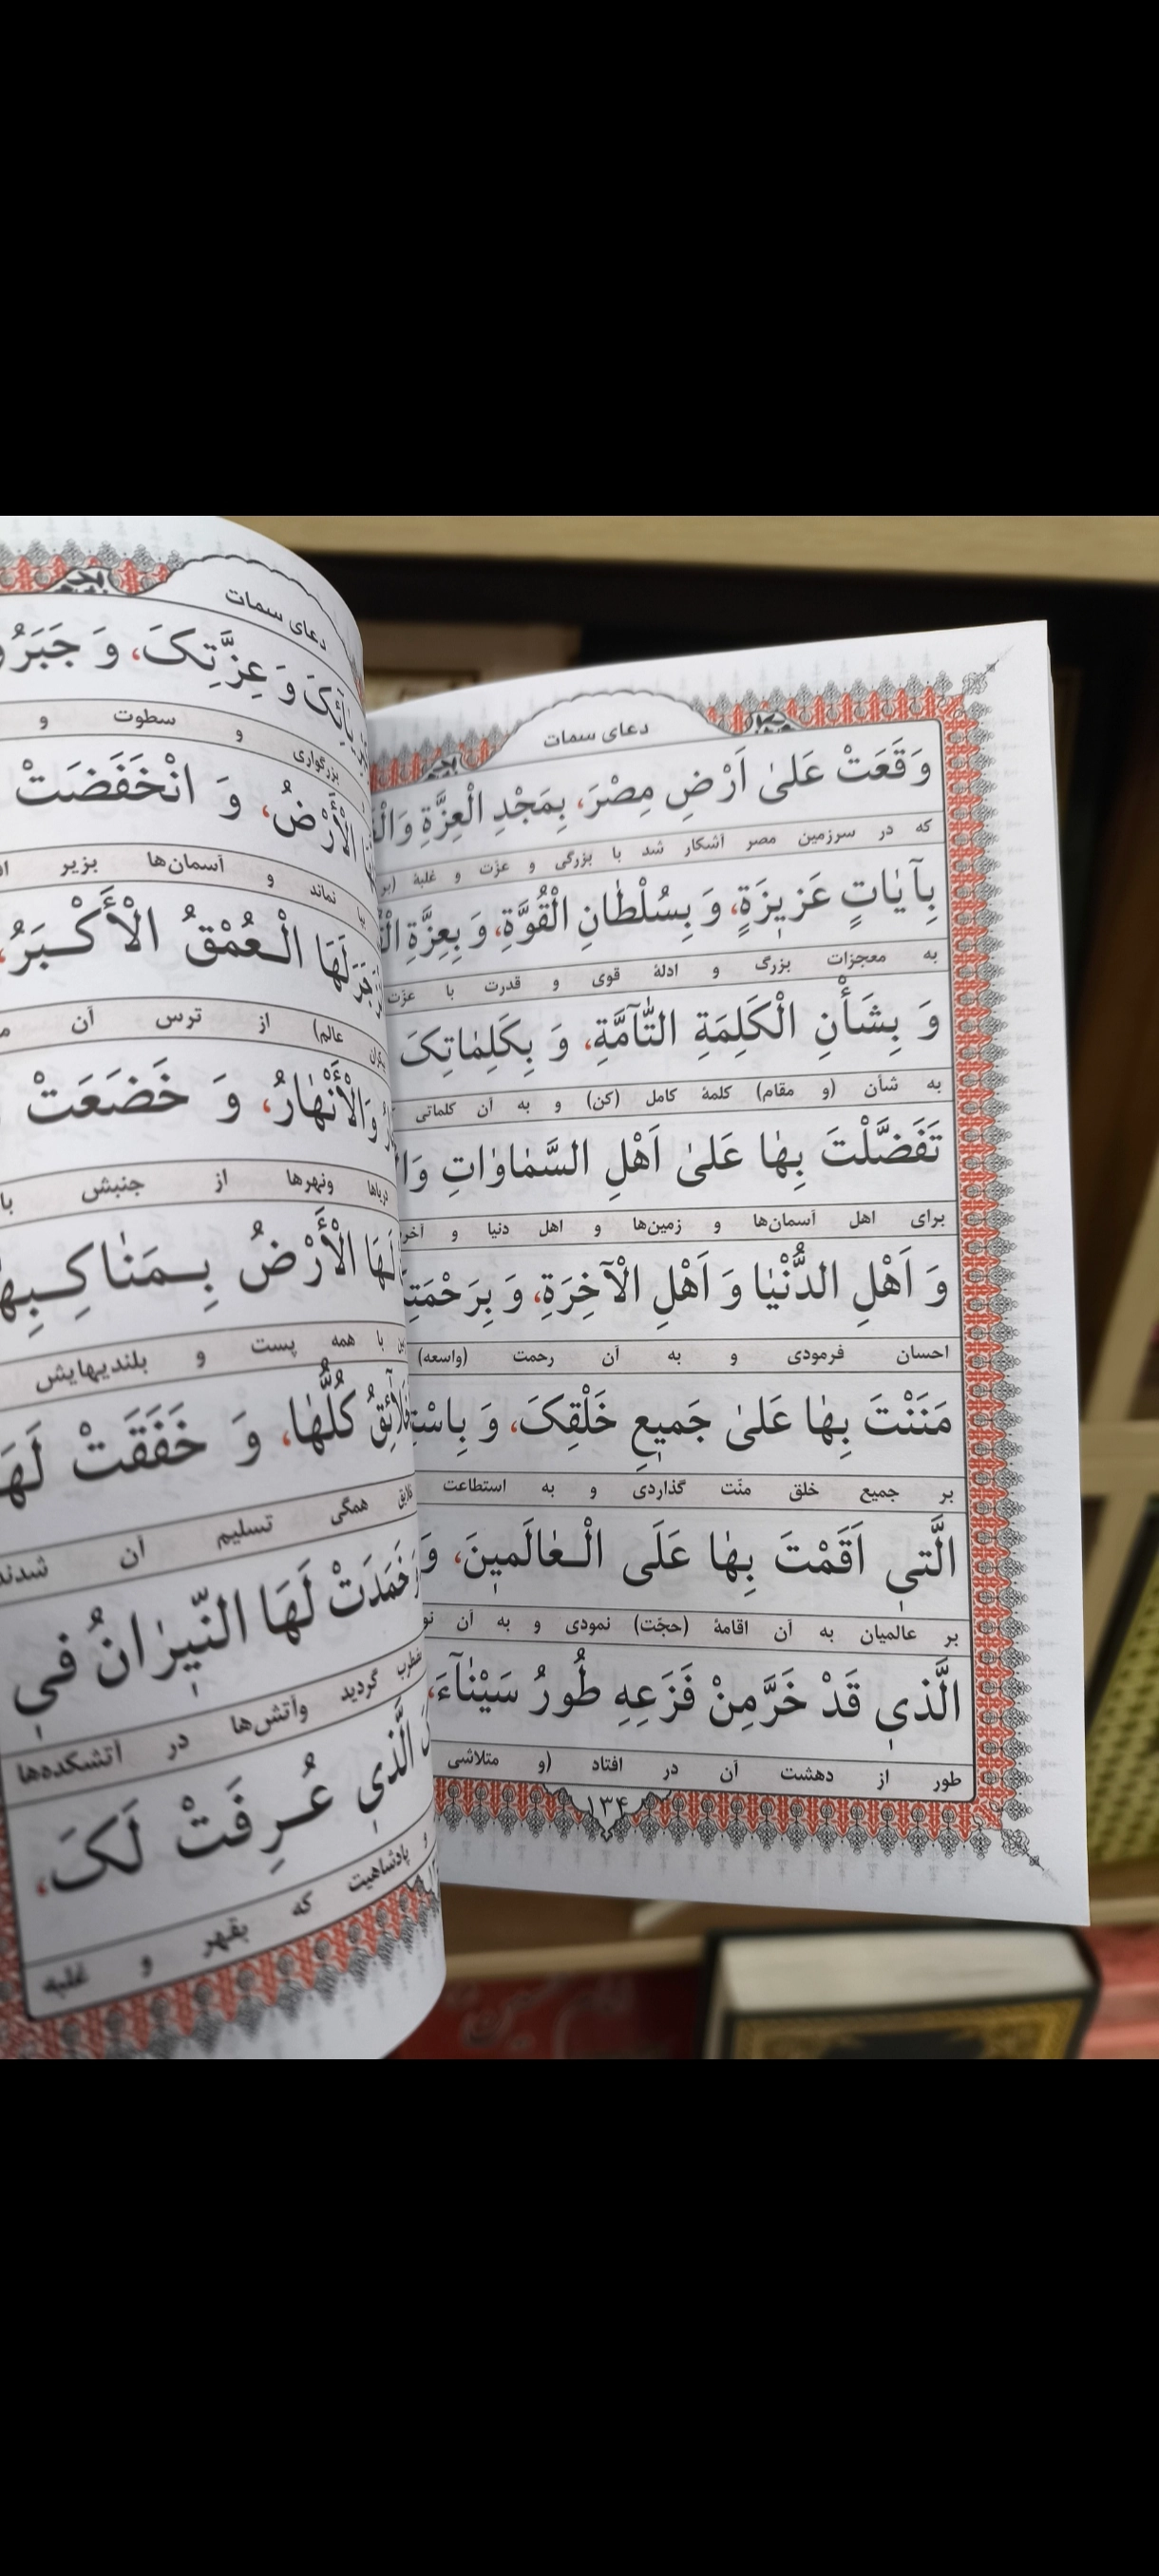 دعای سمات
وَقَعَتْ عَلیٰ اَرْضِ مِصْرَ، بِمَجْدِ الْعِزَّةِ
که در سرزمین مصر آشکار شد با بزرگی و عزّت و غلبهٔ
بِآیَاتٍ عَزیزَةٍ، وَ بِسُلْطٰانِ الْقُوَّةِ، وَ بِعِزَّةِ
به معجزات بزرگ و ادلهٔ قوی و قدرت با عزّت
وَ بِشَأْنِ الْکَلِمَةِ التّٰآمَّةِ، وَ بِکَلِمٰاتِکَ
به شأن (و مقام) کلمهٔ کامل (کن) و به آن کلماتی
تَفَضَّلْتَ بِهٰا عَلیٰ اَهْلِ السَّمٰاوٰاتِ
برای اهل آسمان‌ها و زمین‌ها و اهل دنیا و
وَ اَهْلِ الدُّنْیٰا وَ اَهْلِ الْآخِرَةِ، وَ
احسان فرمودی و به آن رحمت (واسعه)
مَنَنْتَ بِهٰا عَلیٰ جَمیعِ خَلْقِکَ، وَ
بر جمیع خلق منّت گذاردی و به استطاعت
الَّتی اَقَمْتَ بِهٰا عَلَی الْعٰالَمینَ، وَ
بر عالمیان به آن اقامهٔ (حجّت) نمودی و به آن
الَّذی قَدْ خَرَّ مِنْ فَزَعِهِ طُورُ سَیْنٰآءَ،
طور از دهشت آن در افتاد (و متلاشی
۱۳۴
دعای سمات
وَ عِزَّتِکَ، وَ
بزرگواری و سطوت و
وَ انْخَفَضَتْ
نماند و آسمان‌ها بزیر
لَهَا الْعُمْقُ الْأَکْبَرُ،
عالم) از ترس آن
وَالْأَنْهٰارُ، وَ خَضَعَتْ
دریاها ونهرها از جنبش
لَهَا الْأَرْضُ بِمَنٰاکِبِهٰا
با همه پست و بلندیهایش
کُلُّهٰا، وَ خَفَقَتْ لَهَا
همگی تسلیم آن شدند
خَمَدَتْ لَهَا النّیرٰانُ فی
گردید وآتش‌ها در آتشکده‌ها
الَّذی عُرِفَتْ لَکَ،
و پادشاهیت که بقهر و غلبه